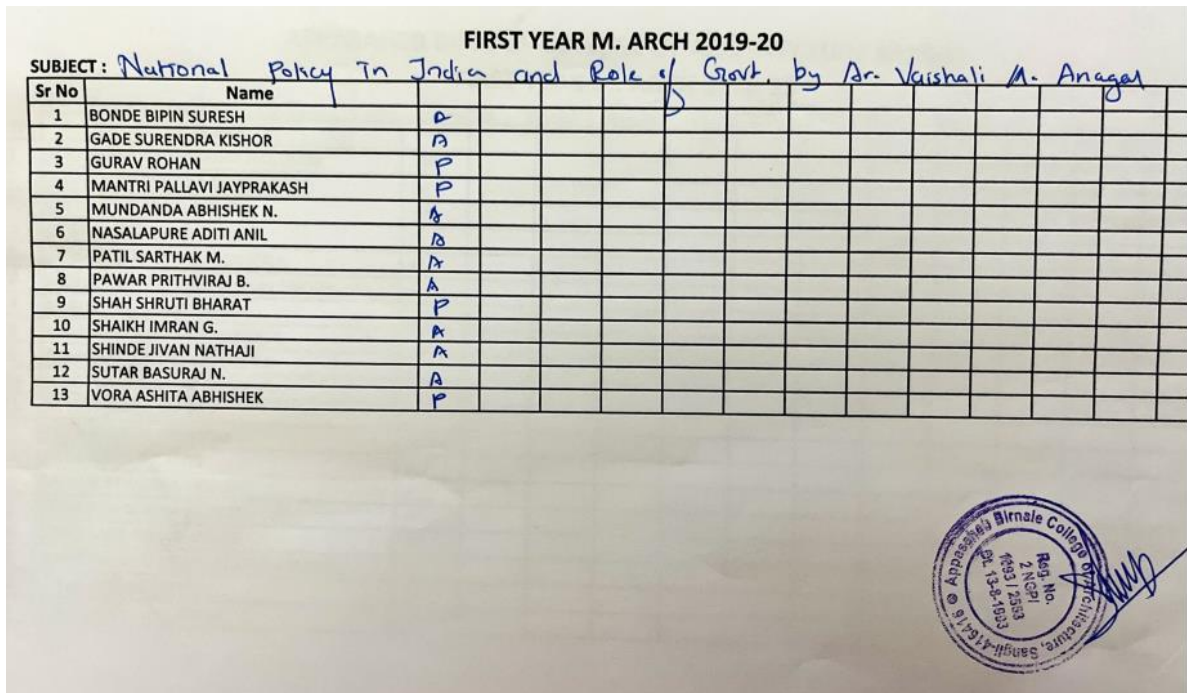 FIRST YEAR M. ARCH 2019-20
SUBJECT : National Policy In India and Role of Govt. by Ar. Vaishali M. Anagal
Sr No Name
1 BONDE BIPIN SURESH A
2 GADE SURENDRA KISHOR A
3 GURAV ROHAN P
4 MANTRI PALLAVI JAYPRAKASH P
5 MUNDANDA ABHISHEK N. A
6 NASALAPURE ADITI ANIL A
7 PATIL SARTHAK M. A
8 PAWAR PRITHVIRAJ B. A
9 SHAH SHRUTI BHARAT P
10 SHAIKH IMRAN G. A
11 SHINDE JIVAN NATHAJI A
12 SUTAR BASURAJ N. A
13 VORA ASHITA ABHISHEK P
Appasaheb Birnale College of Architecture, Sangli-416416
Reg. No.
2 NGP/
1693 / 2553
Dt. 13-8-1993